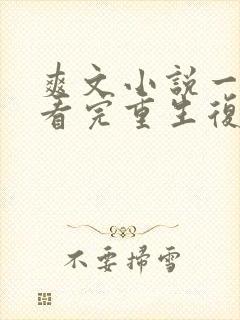 爽文小説一
看完重生復
不要掃雪